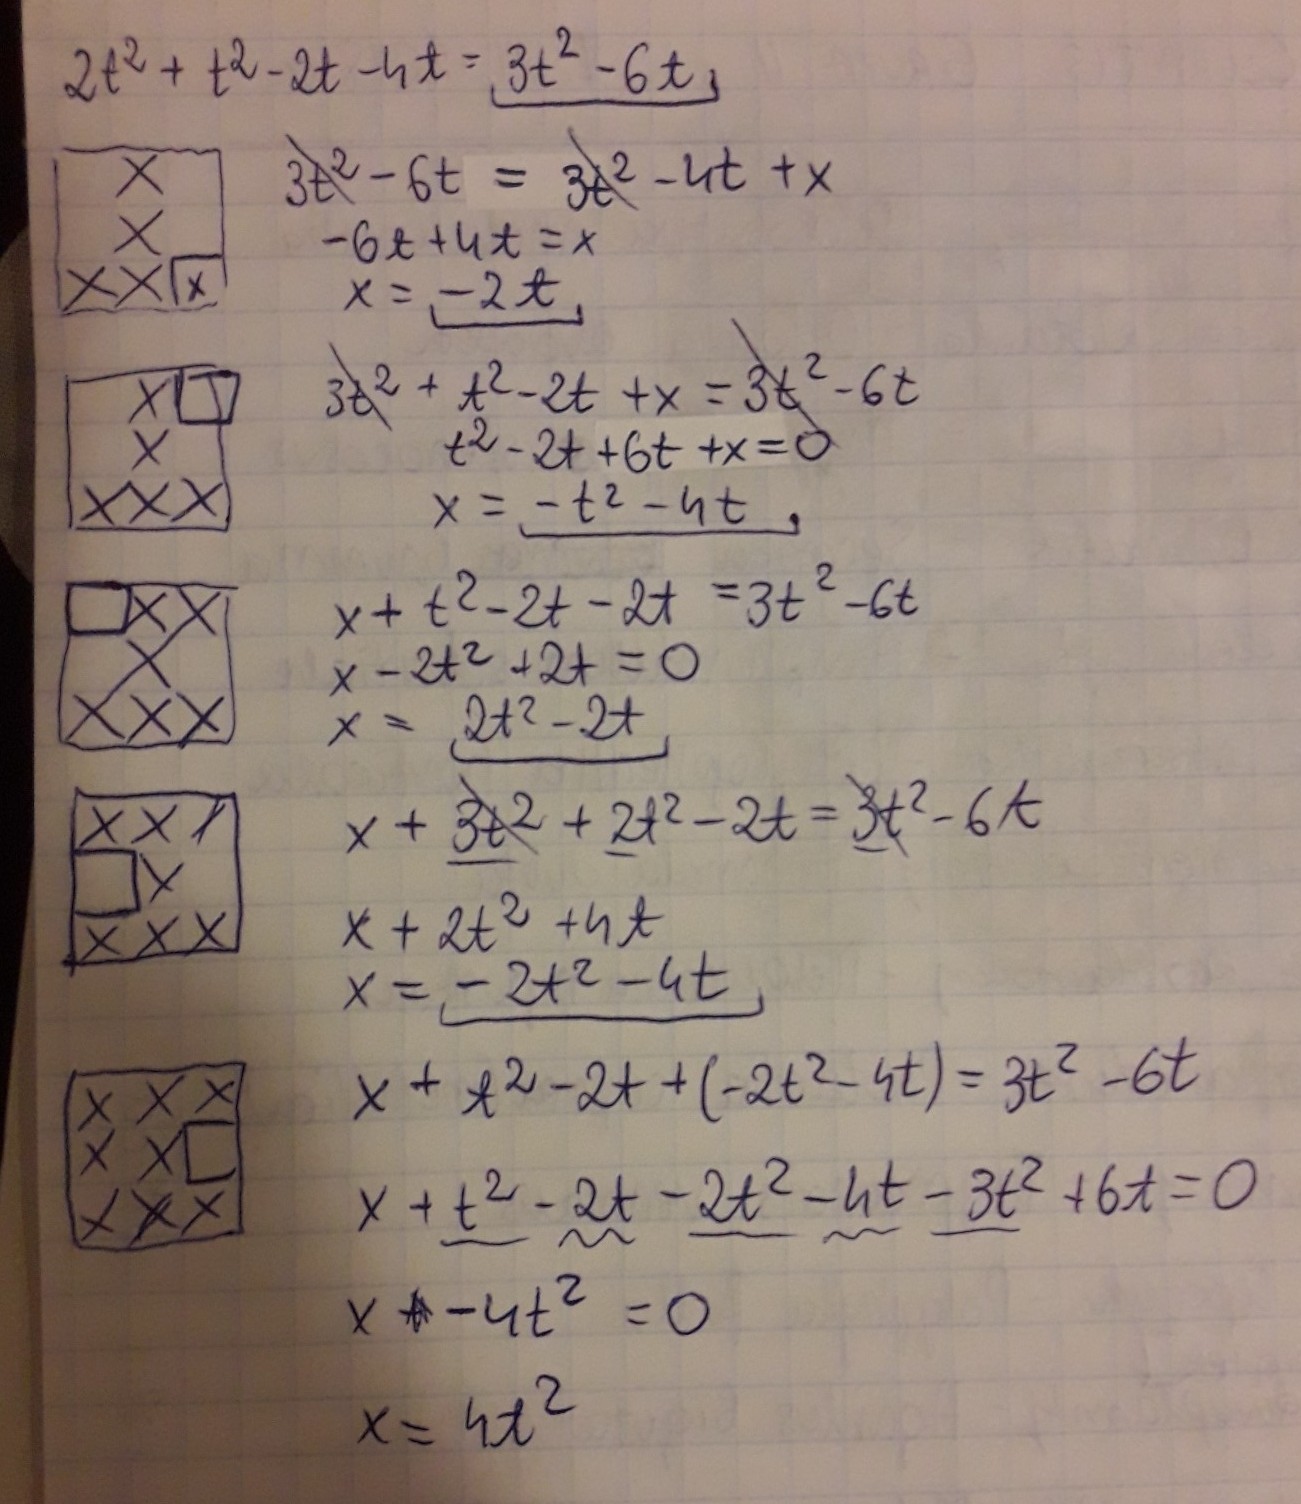 2t² + t² - 2t - 4t = 3t² - 6t
x
x
x x x
3t² - 6t = 3t² - 4t + x
-6t + 4t = x
x = -2t
x
x
x x x
3t² + t² - 2t + x = 3t² - 6t
t² - 2t + 6t + x = 0
x = -t² - 4t
x x
x
x x x
x + t² - 2t - 2t = 3t² - 6t
x - 2t² + 2t = 0
x = 2t² - 2t
x x x
x
x x x
x + 3t² + 2t² - 2t = 3t² - 6t
x + 2t² + 4t
x = -2t² - 4t
x x x
x x
x x x
x + t² - 2t + (-2t² - 4t) = 3t² - 6t
x + t² - 2t - 2t² - 4t - 3t² + 6t = 0
x - 4t² = 0
x = 4t²